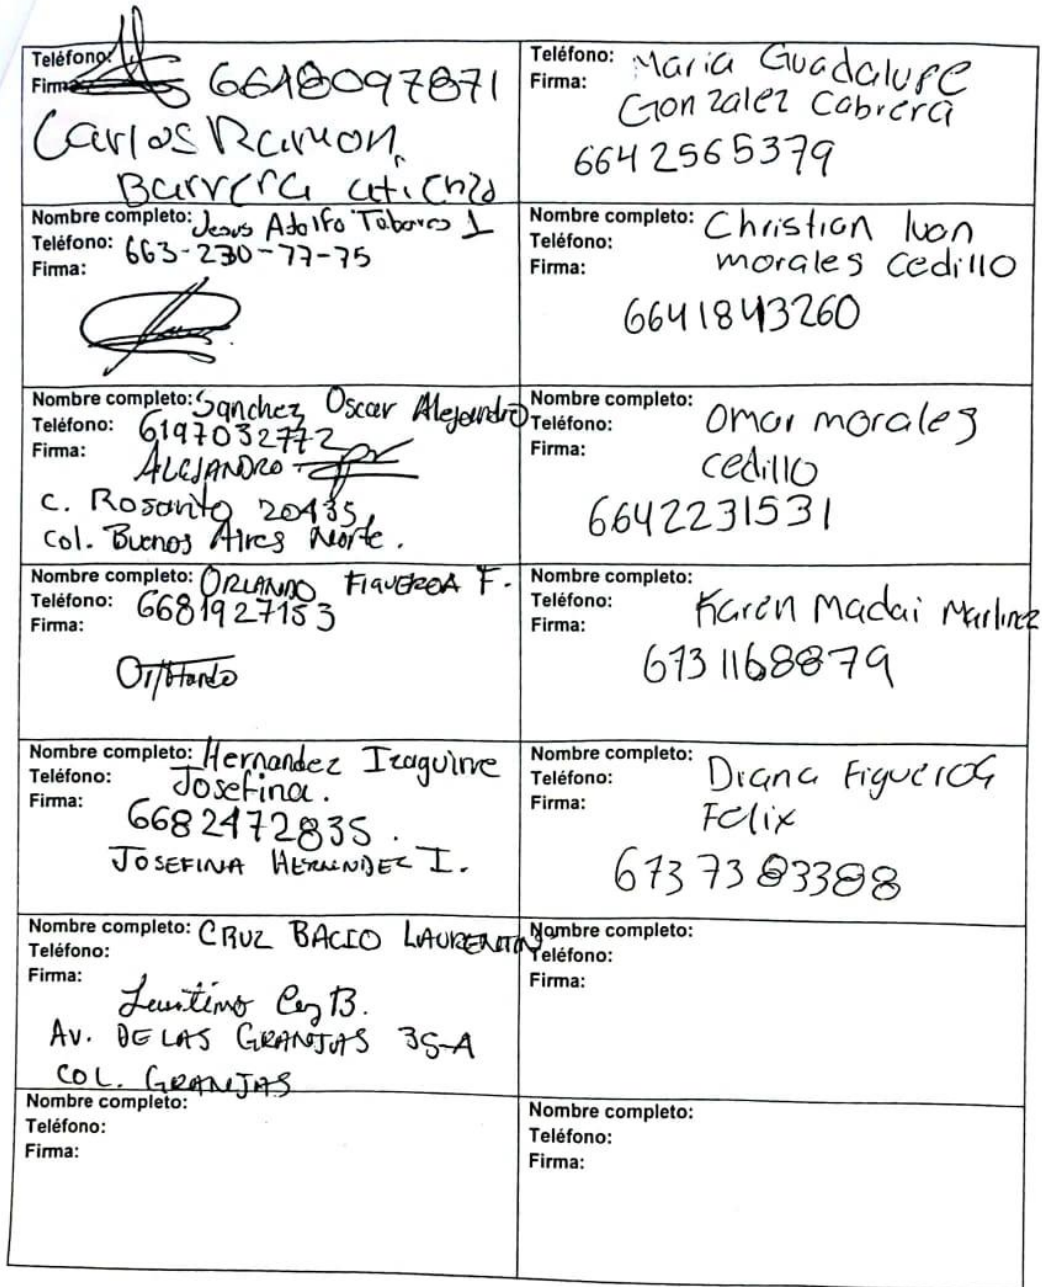 Teléfono:
Firma: 6648097871
Carlos Ramon
Barrera atienzo
Teléfono: Maria Guadalupe
Firma: Gonzalez Cabrera
6642565379
Nombre completo: Jesus Adolfo Tabares I
Teléfono: 663-230-77-75
Firma:
Nombre completo: Christian Ivan
Teléfono: morales cedillo
Firma:
6641843260
Nombre completo: Sanchez Oscar Alejandro
Teléfono: 6197032772
Firma: ALEJANDRO
C. Rosarito 20435,
Col. Buenos Aires Norte.
Nombre completo: Omar morales
Teléfono: cedillo
Firma:
6642231531
Nombre completo: ORLANDO FIGUEROA F.
Teléfono: 6681927153
Firma:
Nombre completo:
Teléfono: Karen Madai Martinez
Firma:
6731168879
Nombre completo: Hernandez Izaguirre
Teléfono: Josefina.
Firma: 6682472835.
JOSEFINA HERNNDEZ I.
Nombre completo: Diana Figueroa
Teléfono: Felix
Firma:
6737383388
Nombre completo: CRUZ BACIO LAURENTINO
Teléfono:
Firma:
AV. DE LAS GRANJAS 35-A
COL. GRANJAS
Nombre completo:
Teléfono:
Firma:
Nombre completo:
Teléfono:
Firma:
Nombre completo:
Teléfono:
Firma: